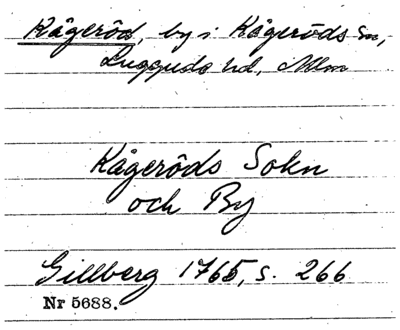 Kågeröd, by i Kågeröds sn,
Luggude hd, Mlm
Kågeröds Sokn
och By
Gillberg 1765, s. 266
Nr 5688.